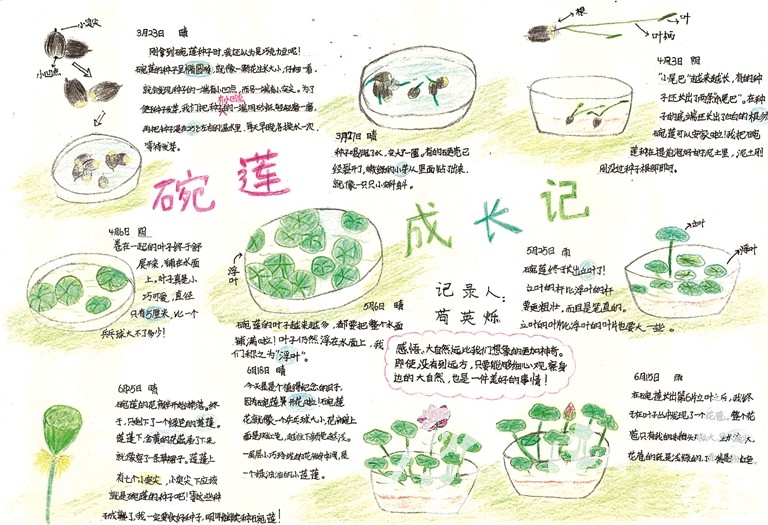 小尖尖
小凹点
3月23日 晴
刚拿到碗莲种子时,我还以为是巧克力豆呢!
碗莲的种子呈椭圆形,就像一颗花生米大小,仔细一看,
就会发现种子的一端有小凹点,而另一端有小尖尖。为了
使种子发芽,我们把种子有小凹点的一端用砂纸轻轻磨一磨,
再把种子浸在
左右的温水里,每天早晚各换水一次,
等待发芽。
3月27日 晴
种子喝饱了水,变大了一圈。有的硬壳已
经裂开了,嫩绿的小芽从里面钻了出来,
就像一只只小蝌蚪。
根
叶
叶柄
4月3日 阴
“小尾巴”越来越长,有的种
子还长出了两条小尾巴”。在种
子的底端还长出了白白的根须
碗莲可以安家啦!我把碗
莲种在提前泡好的泥土里,泥土刚
刚没过种子根部即可。
碗莲
成长记
记录人:
荀英烁
4月6日 阴
卷在一起的叶子终于舒
展开来,铺在水面
上。叶子真是小
巧可爱,直径
只有5厘米,比一个
乒乓球大不了多少!
浮叶
5月6日 晴
碗莲的叶子越来越多,都要把整个水面
铺满啦!叶子仍然浮在水面上,我
们称之为“浮叶”。
5月25日 雨
碗莲终于长出立叶了!
立叶的杆比浮叶的杆
要更粗壮,而且是笔直的。
立叶的叶片比浮叶的叶片也要大一些。
立叶
浮叶
感悟:大自然远比我们想象的更加神奇。
即使没有到远方,只要能够细心观察身
边的大自然,也是一件美好的事情!
6月15日 雨
在碗莲长出第6片立叶之后,我终
于在叶子丛中发现了一个花苞。整个花
苞只有
花苞的底是浅绿的,
6月18日 晴
今天是个值得纪念的日子,
因为碗莲竟开花啦!碗莲
花就像一个乒乓球大小,花瓣上
面是
一层层小巧玲珑的花瓣中间,是
一个绿油油的小莲蓬。
6月25日 晴
碗莲的花瓣开始掉落。终
于,只剩下了一个绿色的莲蓬。
莲蓬下,金黄的花蕊垂了下来,
就像穿了一条草裙子。莲蓬上
有七个小尖尖,小尖尖下应该
就是碗莲的种子吧!等这些种
子成熟了,我一定要收好种子,明年继续种碗莲!